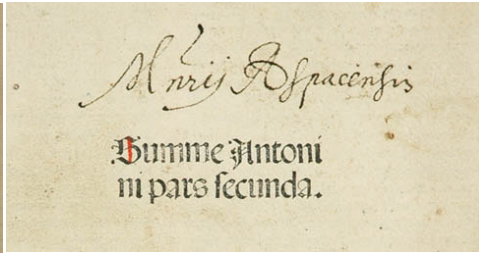 Mnrij Aspacensis
Summe Antoni
ni pars secunda.